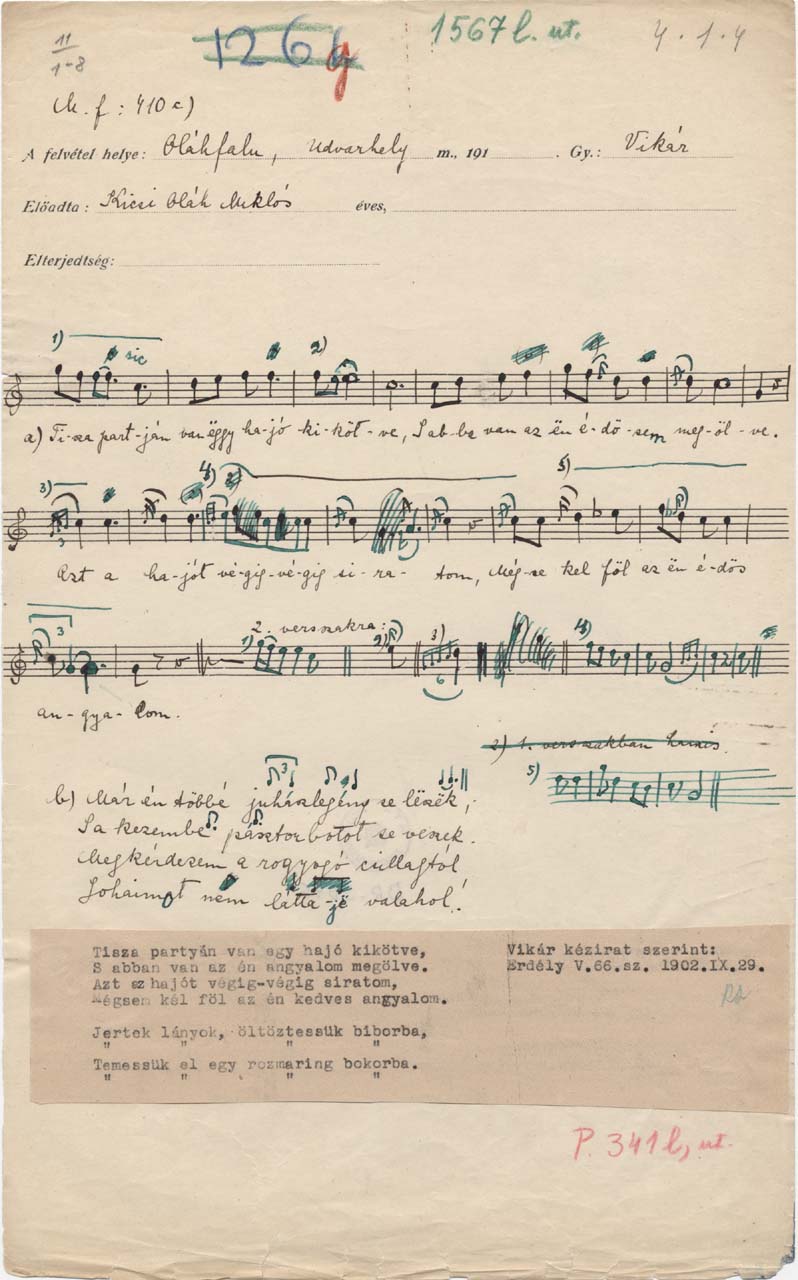 11
1-8
126
g
1567 l. ut.
4.1.4
M. f: 410 c)
A felvétel helye: Oláhfalu, Udvarhely m., 191 . Gy.: Vikár
Előadta: Kicsi Oláh Miklós éves,
Elterjedtség:
1)
sic
2)
a) Ti-sza part-ján van ëggy ha-jó ki-köt-ve, S ab-ba van az ën é-dö-sem meg-öl-ve.
3)
4)
5)
3
Azt a ha-jót vé-gig-vé-gig si-ra-tom, Még-se kel föl az ën é-dös
3
2. versszakra:
1)
2)
3)
6
4)
an-gya-lom.
2) 1. versszakban
5)
3
b) Már én többé juhászlegény se lëszëk,
Sa kezembe pásztorbotot se veszek.
Megkérdezem a rogyogó csillagtól
Johaimot nem látta-jë valahol!
Tisza partyán van egy hajó kikötve,
S abban van az én angyalom megölve.
Azt ez hajót végig-végig siratom,
Mégsem kél föl az én kedves angyalom.
Vikár kézirat szerint:
Erdély V.66.sz. 1902.IX.29.
Jertek lányok, öltöztessük biborba,
" " " "
Temessük el egy rozmaring bokorba.
" " " "
P. 341 l, ut.